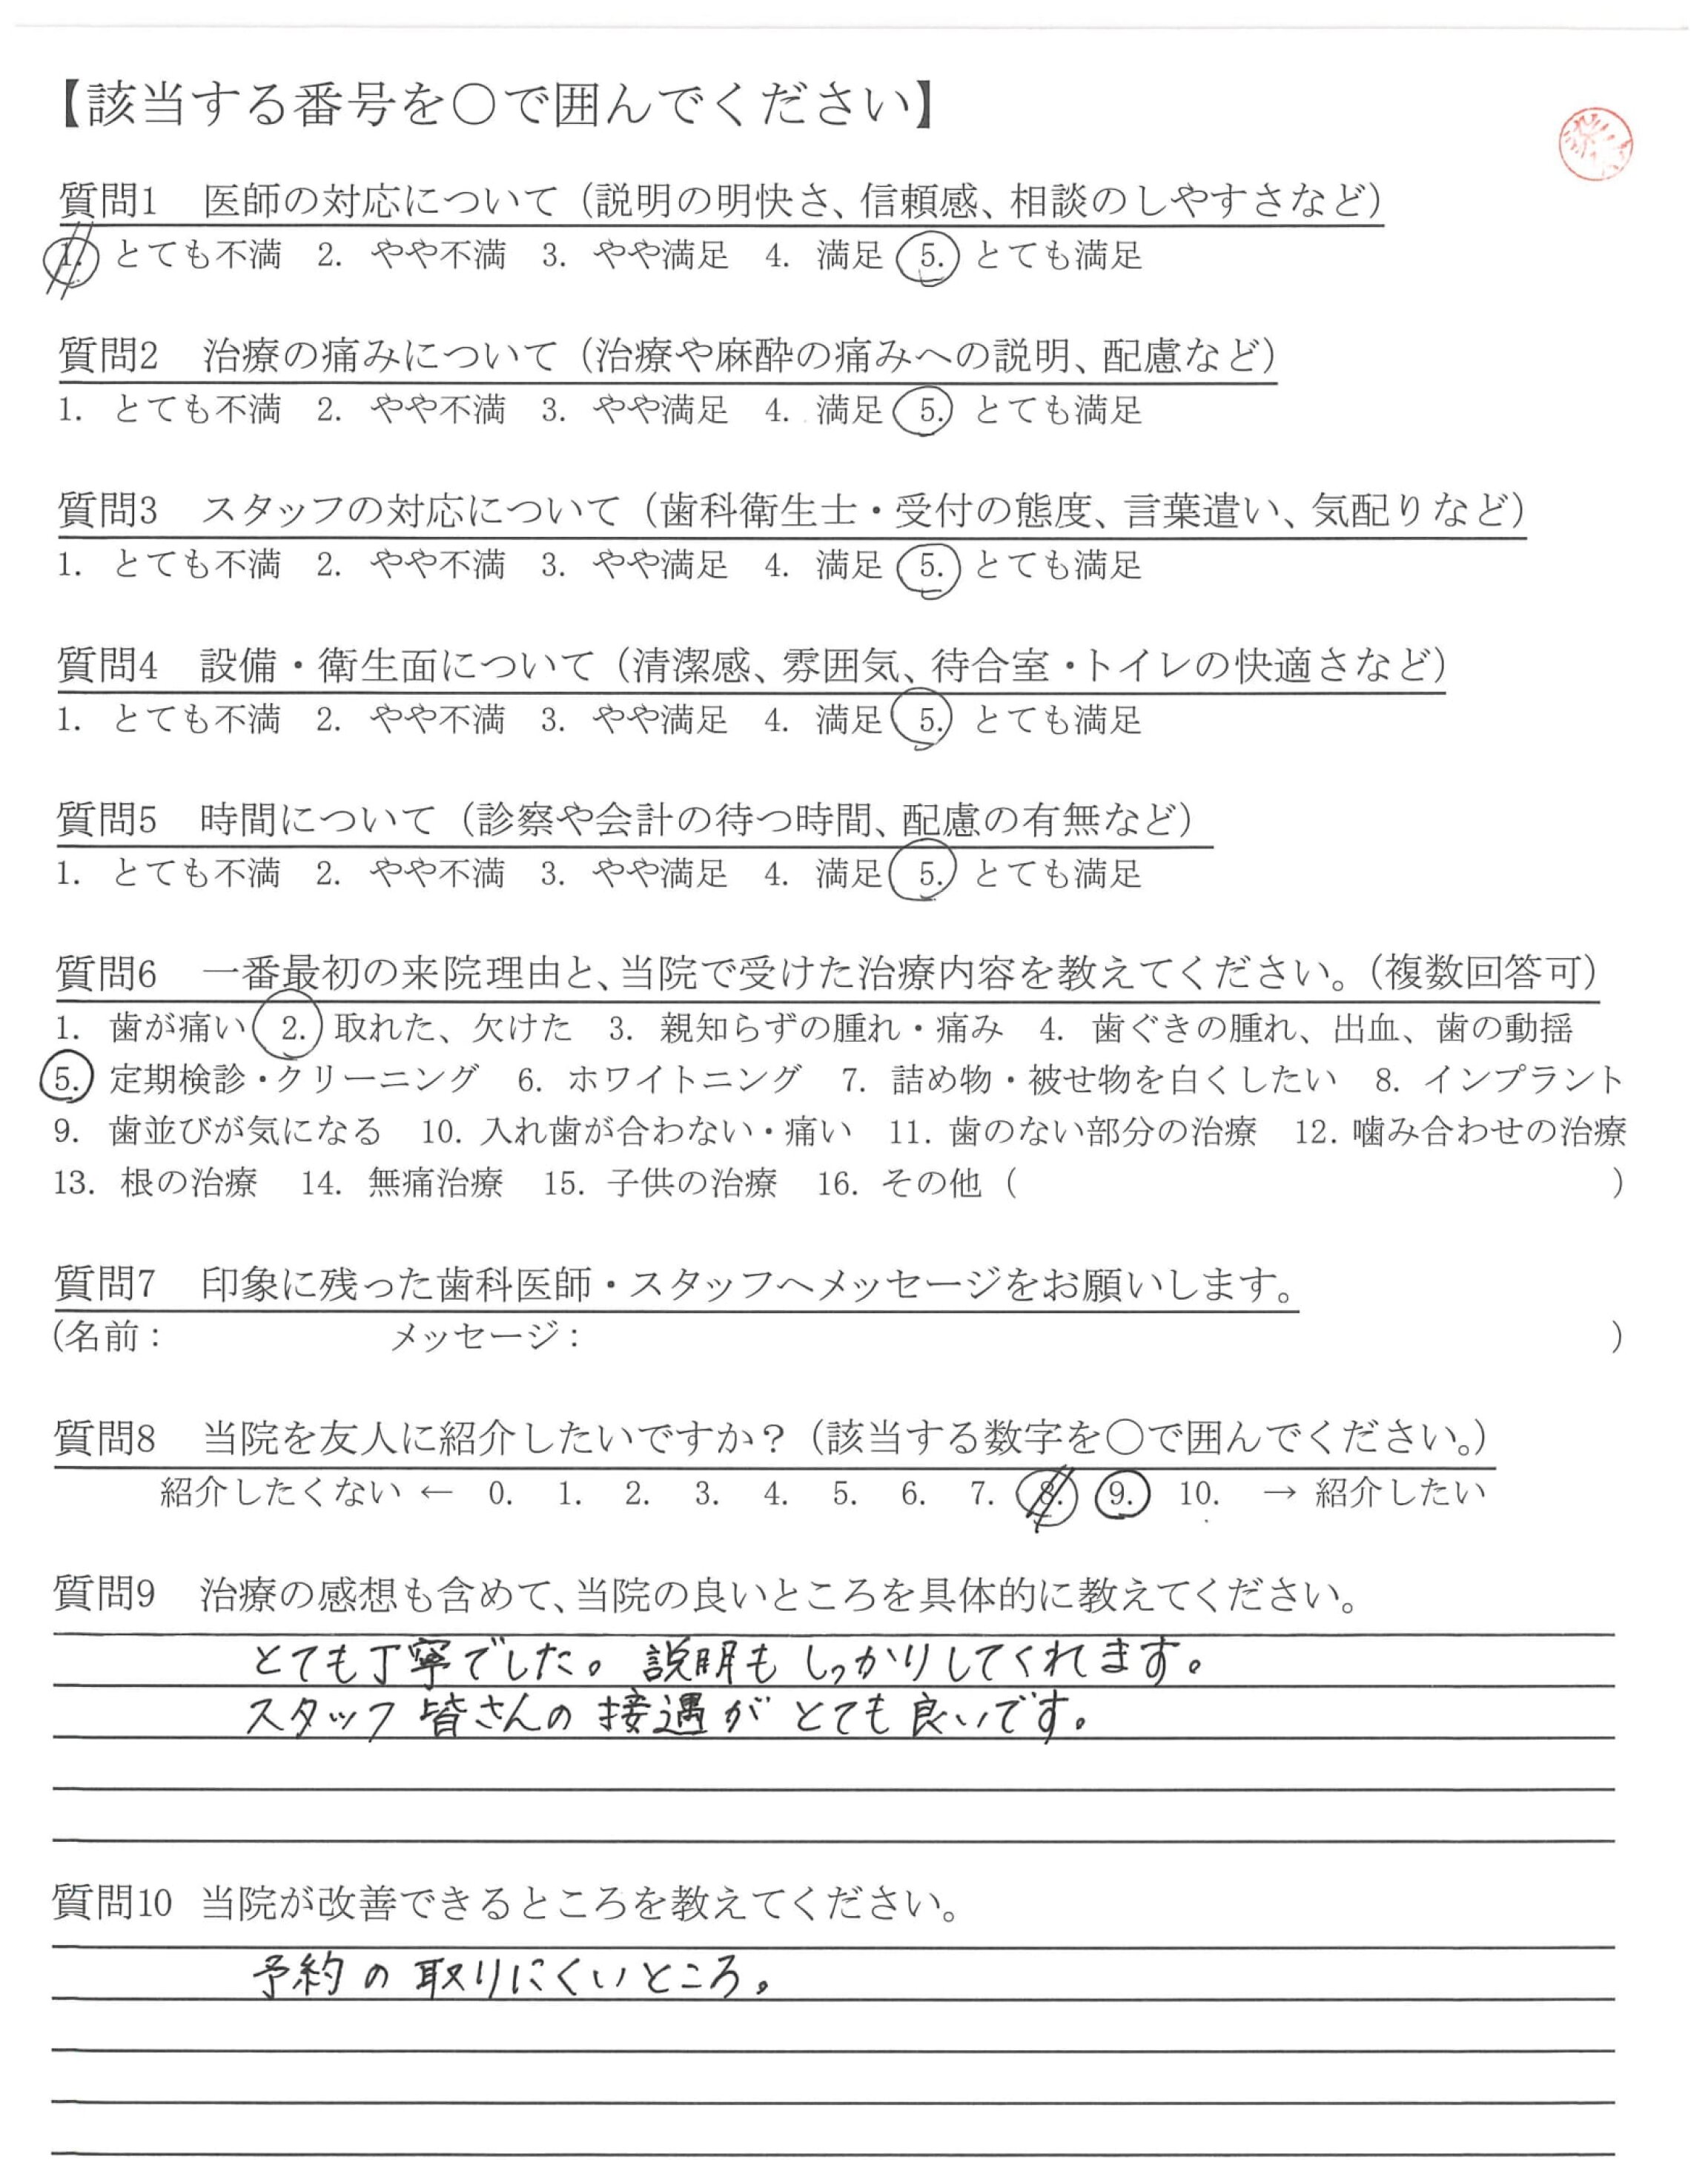 【該当する番号を○で囲んでください】
質問1 医師の対応について（説明の明快さ、信頼感、相談のしやすさなど）
1. とても不満 2. やや不満 3. やや満足 4. 満足 5. とても満足
質問2 治療の痛みについて（治療や麻酔の痛みへの説明、配慮など）
1. とても不満 2. やや不満 3. やや満足 4. 満足 5. とても満足
質問3 スタッフの対応について（歯科衛生士・受付の態度、言葉遣い、気配りなど）
1. とても不満 2. やや不満 3. やや満足 4. 満足 5. とても満足
質問4 設備・衛生面について（清潔感、雰囲気、待合室・トイレの快適さなど）
1. とても不満 2. やや不満 3. やや満足 4. 満足 5. とても満足
質問5 時間について（診察や会計の待つ時間、配慮の有無など）
1. とても不満 2. やや不満 3. やや満足 4. 満足 5. とても満足
質問6 一番最初の来院理由と、当院で受けた治療内容を教えてください。（複数回答可）
1. 歯が痛い 2. 取れた、欠けた 3. 親知らずの腫れ・痛み 4. 歯ぐきの腫れ、出血、歯の動揺
5. 定期検診・クリーニング 6. ホワイトニング 7. 詰め物・被せ物を白くしたい 8. インプラント
9. 歯並びが気になる 10. 入れ歯が合わない・痛い 11. 歯のない部分の治療 12. 噛み合わせの治療
13. 根の治療 14. 無痛治療 15. 子供の治療 16. その他（ ）
質問7 印象に残った歯科医師・スタッフへメッセージをお願いします。
（名前： メッセージ： ）
質問8 当院を友人に紹介したいですか？（該当する数字を○で囲んでください。）
紹介したくない ← 0. 1. 2. 3. 4. 5. 6. 7. 8. 9. 10. → 紹介したい
質問9 治療の感想も含めて、当院の良いところを具体的に教えてください。
とても丁寧でした。説明もしっかりしてくれます。
スタッフ皆さんの接遇がとても良いです。
質問10 当院が改善できるところを教えてください。
予約の取りにくいところ。